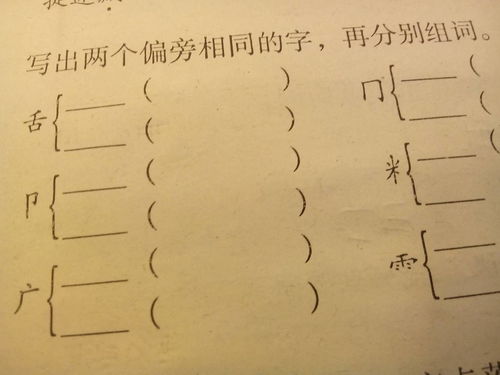 写出两个偏旁相同的字，再分别组词。
舌 ( )
( )
卩 ( )
( )
广 ( )
( )
冂 (
(
米 (
雨